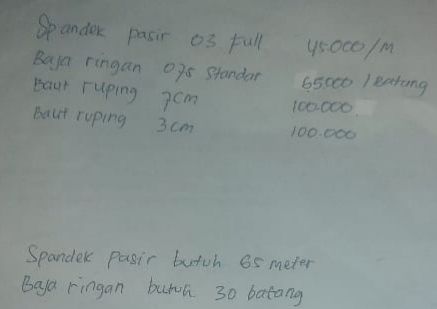 Spandek pasir 03 full 45.000/M
Baja ringan 075 Standar 65.000 / Batang
Baut ruping 7cm 100.000
Baut ruping 3cm 100.000
Spandek pasir butuh 65 meter
Baja ringan butuh 30 batang